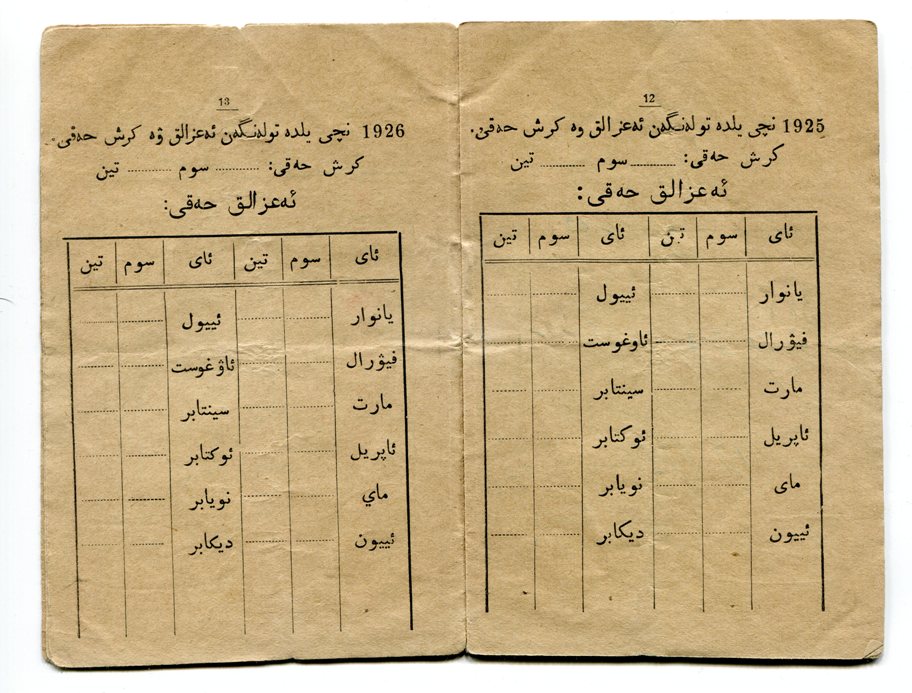 12
1925 نچی یلده تولەنگەن ئەعزالق وە کرش حەقی.
کرش حەقی: ............ سوم ............ تین
ئەعزالق حەقی:
ئای سوم تین ئای سوم تین
یانوار ئییول
فیۋرال ئاوغوست
مارت سینتابر
ئاپریل ئوکتابر
مای نویابر
ئییون دیکابر
13
1926 نچی یلده تولەنگەن ئەعزالق ۋە کرش حەقی.
کرش حەقی: ............ سوم ............ تین
ئەعزالق حەقی:
ئای سوم تین ئای سوم تین
یانوار ئییول
فیۋرال ئاۋغوست
مارت سینتابر
ئاپریل ئوکتابر
ماي نویابر
ئییون دیکابر